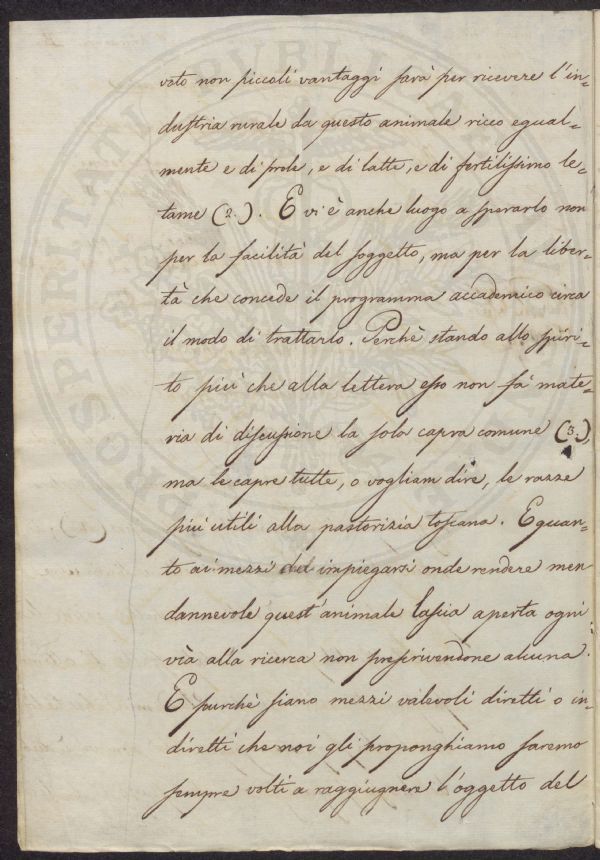 voto non piccoli vantaggi sarà per ricevere l'in=
dustria rurale da questo animale ricco egual=
mente e di prole, e di latte, e di fertilissimo le=
tame (2.). E vi è anche luogo a sperarlo non
per la facilità del soggetto, ma per la liber=
tà che concede il programma accademico circa
il modo di trattarlo. Perchè stando allo spiri=
to più che alla lettera esso non fà mate=
ria di discussione la sola capra comune (3.)
ma le capre tutte, o vogliam dire, le razze
più utili alla pastorizia toscana. E quan=
to ai mezzi del impiegarsi onde rendere men
dannevole quest'animale lascia aperta ogni
via alla ricerca non prescrivendone alcuna.
E purchè siano mezzi valevoli diretti o in=
diretti che noi gli proponghiamo saremo
sempre volti a raggiugnere l'oggetto del
PROSPERITATI PUBLI